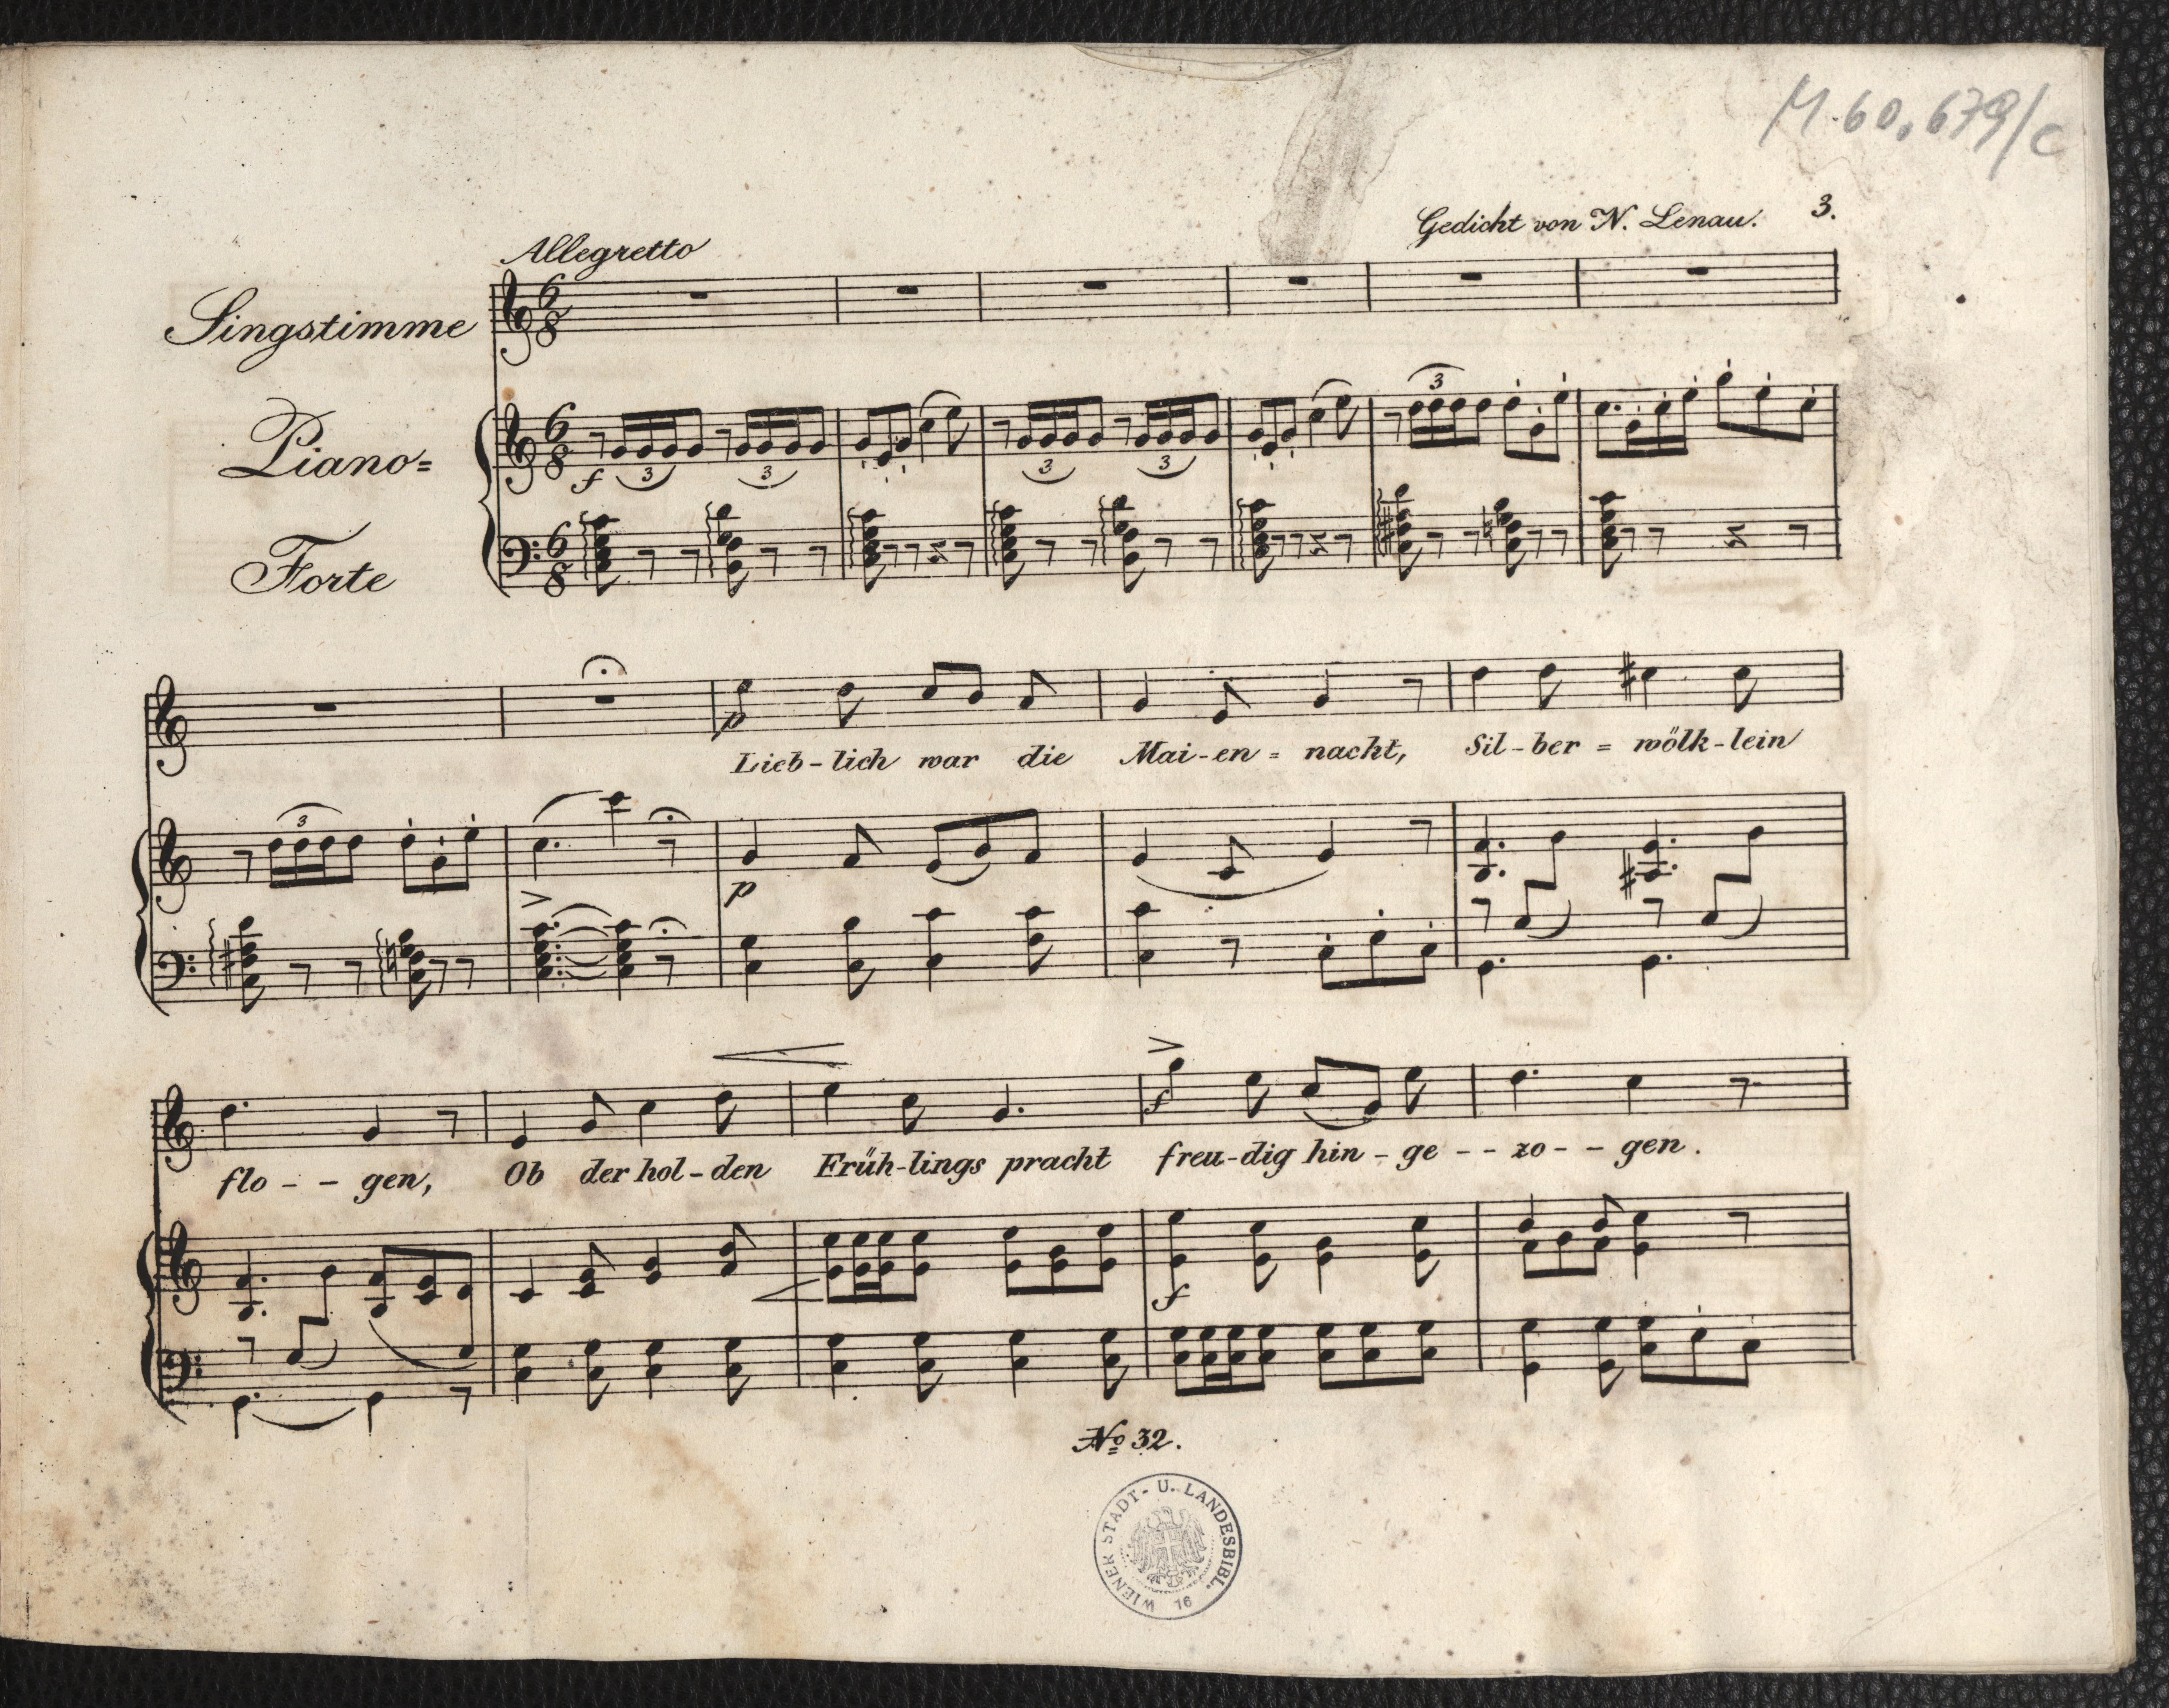 M. 60.679/c
Gedicht von N. Lenau. 3.
Allegretto
Singstimme
6
8
Piano=
6
8
f 3 3 3 3 3
Forte
6
8
p
Lieb-lich war die Mai-en = nacht, Sil-ber = wölk-lein
3
p
f
flo - - gen, Ob der hol-den Früh-lings pracht freu-dig hin - ge - - zo - - gen.
f
No 32.
WIENER STADT- U. LANDESBIBL.
16